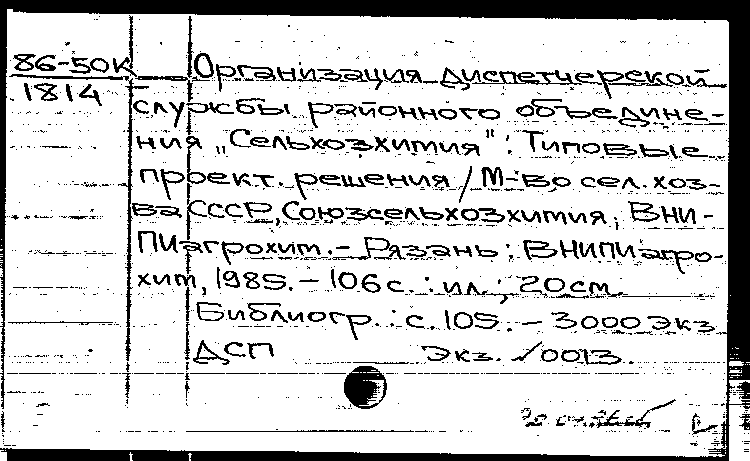 86-50К Организация диспетчерской
1814 службы районного объедине-
ния „Сельхозхимия": Типовые
проект. решения / М-во сел. хоз-
ва СССР, Союзсельхозхимия, ВНИ-
ПИагрохим. - Рязань: ВНИПИагро-
хим, 1985. - 106 с. : ил.; 20 см.
Библиогр.: с. 105. - 3000 экз
ДСП Экз. √0013.